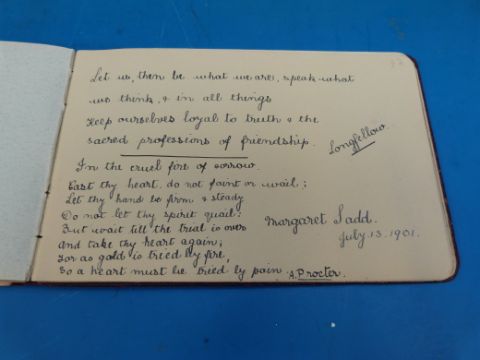 Let us, then be what we are, speak what
we think, & in all things
Keep ourselves loyal to truth & the
sacred professions of friendship.
Longfellow.
In the cruel fire of sorrow.
Cast thy heart, do not faint or wail;
Let thy hand be firm & steady
Do not let thy spirit quail:
But wait till the trial is over
And take thy heart again;
For as gold is tried by fire,
So a heart must be tried by pain. A. Procter.
Margaret Ladd.
July 13. 1901.